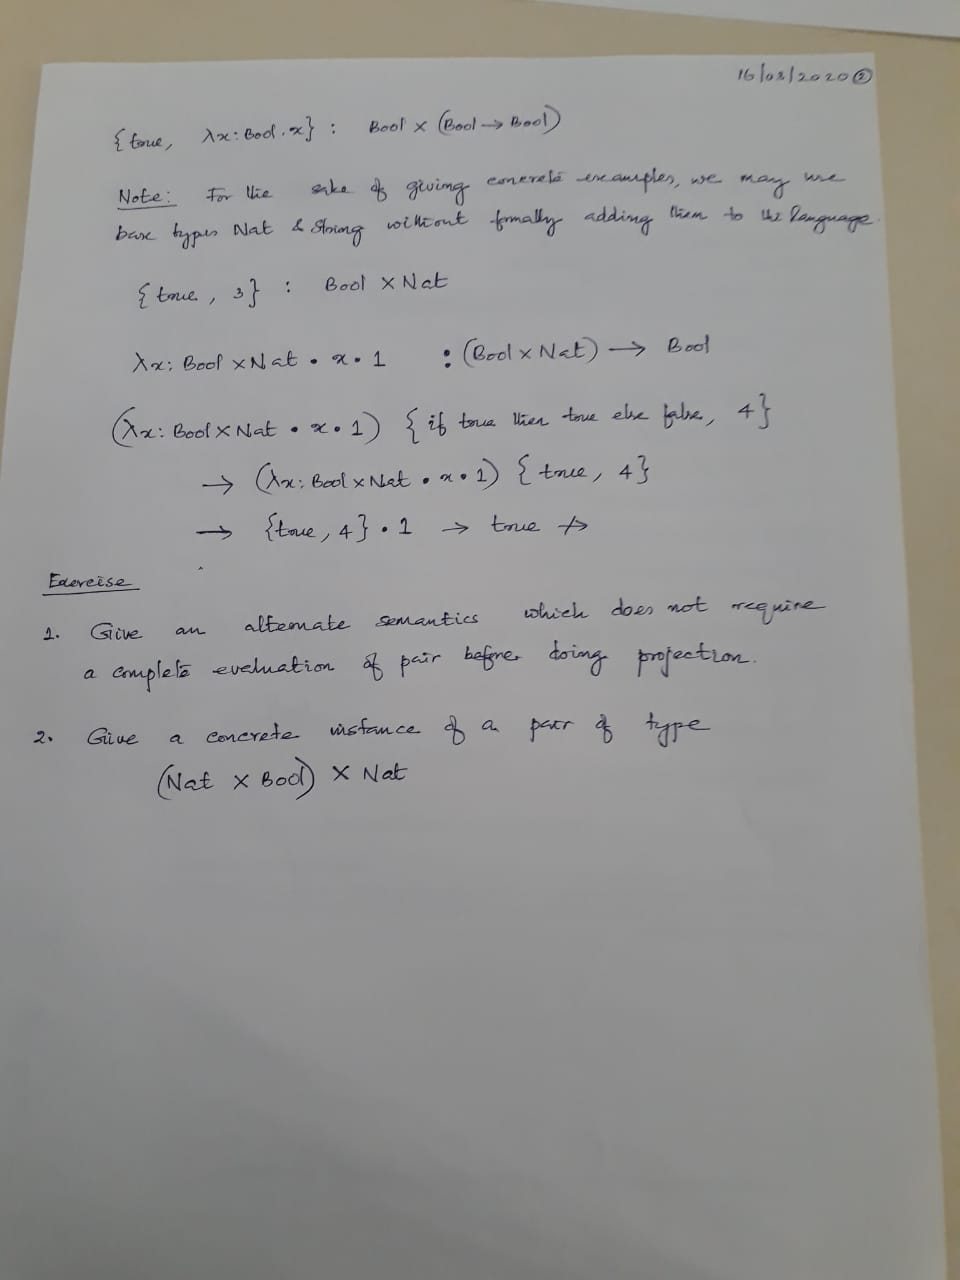 16/03/2020 ②
{true, λx:Bool.x} : Bool × (Bool → Bool)
Note: For the sake of giving concrete examples, we may use
base types Nat & String without formally adding them to the language.
{true, 3} : Bool × Nat
λx: Bool × Nat . x.1 : (Bool × Nat) → Bool
(λx: Bool × Nat . x.1) {if true then true else false, 4}
→ (λx: Bool × Nat . x.1) {true, 4}
→ {true, 4}.1 → true ↛
Exercise
1. Give an alternate semantics which does not require
a complete evaluation of pair before doing projection.
2. Give a concrete instance of a pair of type
(Nat × Bool) × Nat